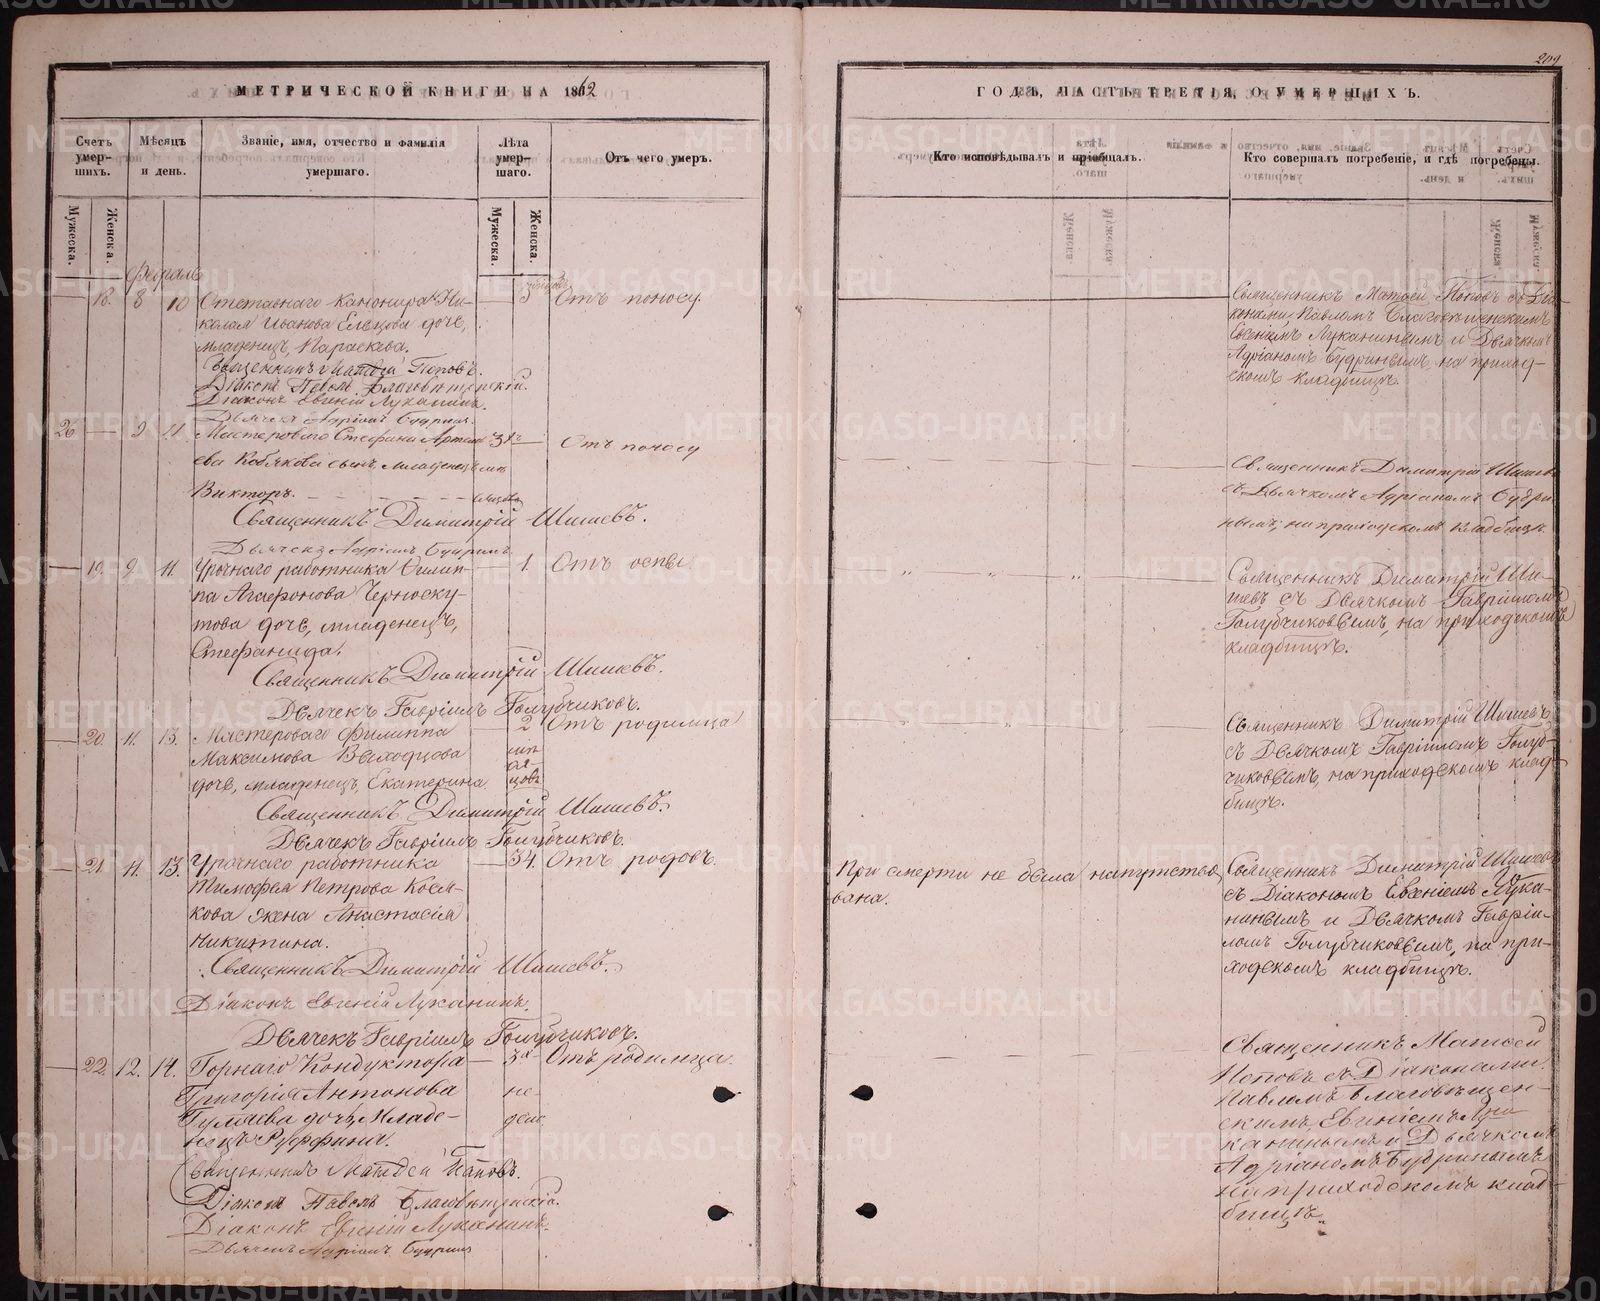 209
МЕТРИЧЕСКОЙ КНИГИ НА 1862
Счетъ умер-шихъ.
Мѣсяцъ и день.
Званіе, имя, отчество и фамилія умершаго.
Лѣта умер-шаго.
Отъ чего умеръ.
Мужеска.
Женска.
Мужеска.
Женска.
Февраль
18. 8 10 Отставнаго канонира Ни-
колая Иванова Ельцова дочь,
младенецъ, Параскева.
3 Отъ поносу.
Священникъ Матѳей Поповъ.
Діаконъ Павелъ Благовѣщенскій.
Діаконъ Евгеній Луканинъ.
Дьячекъ Адріанъ Будринъ.
26 — 9 11. Мастероваго Стефана Артемь-
ева Кобякова сынъ, младенецъ
Викторъ.
3хъ
мѣсяцовъ
Отъ поносу
Священникъ Димитрій Шишевъ.
Дьячекъ Адріанъ Будринъ.
19. 9. 11. Урочнаго работника Филип-
па Агафонова Черноску-
това дочь, младенецъ,
Стефанида.
1. Отъ оспы.
Священникъ Димитрій Шишевъ.
Дьячекъ Гавріилъ Голубчиковъ.
20. 11. 13. Мастероваго Филиппа
Максимова Выходцова
дочь, младенецъ, Екатерина
2
мѣ-
ся-
цовъ
Отъ родимца
Священникъ Димитрій Шишевъ.
Дьячекъ Гавріилъ Голубчиковъ.
21 11. 13. Урочнаго работника
Тимофея Петрова Кося-
кова жена Анастасія
Никитина.
34. Отъ родовъ.
Священникъ Димитрій Шишевъ.
Діаконъ Евгеній Луканинъ.
Дьячекъ Гавріилъ Голубчиковъ.
22. 12. 14. Горнаго Кондуктора
Григорія Антонова
дочь, Младе-
нецъ Руффина.
3хъ
не-
дель
Отъ родимца.
Священникъ Матѳей Поповъ.
Діаконъ Павелъ Благовѣщенскій.
Діаконъ Евгеній Луканинъ.
Дьячекъ Адріанъ Будринъ
ГОДЪ, ЧАСТЬ ТРЕТІЯ, О УМЕРШИХЪ.
Кто исповѣдывалъ и пріобщалъ.
Кто совершалъ погребеніе, и гдѣ погребены.
Священникъ Матѳей Поповъ съ Діа-
конами, Павломъ Благовѣщенскимъ
Евгеніемъ Луканинымъ и Дьячкомъ
Адріаномъ Будринымъ, на приход-
скомъ кладбищѣ.
Священникъ Димитрій Шишевъ
съ Дьячкомъ Адріаномъ Будри-
нымъ, на приходскомъ кладбищѣ.
Священникъ Димитрій Ши-
шевъ съ Дьячкомъ Гавріиломъ
Голубчиковымъ, на приходскомъ
кладбищѣ.
Священникъ Димитрій Шишевъ
съ Дьячкомъ Гавріиломъ Голуб-
чиковымъ, на приходскомъ клад-
бищѣ.
При смерти не была напутство-
вана.
Священникъ Димитрій Шишевъ
съ Діакономъ Евгеніемъ Лука-
нинымъ и Дьячкомъ Гавріи-
ломъ Голубчиковымъ, на при-
ходскомъ кладбищѣ.
Священникъ Матѳей
Поповъ съ Діаконами
Павломъ Благовѣщен-
скимъ, Евгеніемъ Лу-
канинымъ и Дьячкомъ
Адріаномъ Будринымъ
на приходскомъ клад-
бищѣ.
METRIKI.GASO-URAL.RU